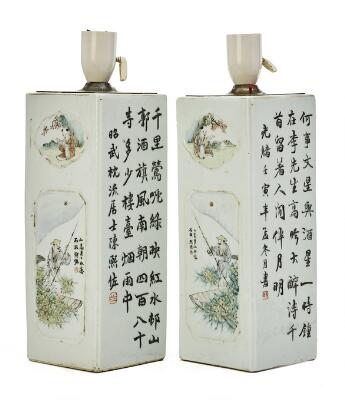 千里鶯啼綠映紅水邨山
郭酒旗風南朝四百八十
寺多少樓臺烟雨中
昭武枕流居士陳熙
何事文星與酒星一時鍾
在李先生高吟大醉詩千
首留著人間伴月明
光緒壬寅年孟冬月書